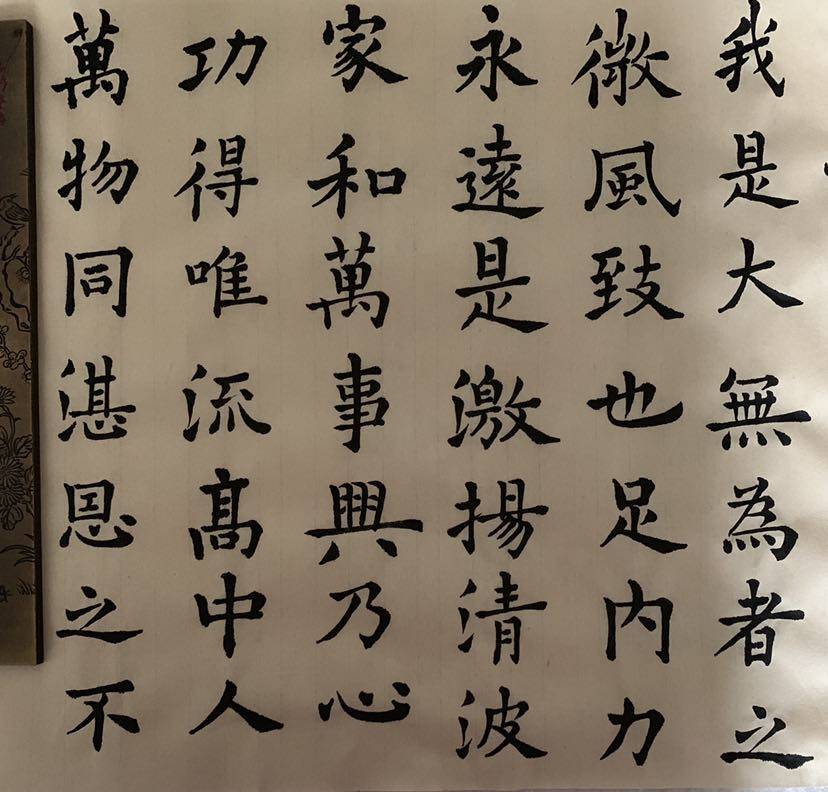 我是大無為者之
微風致也足内力
永遠是激揚清波
家和萬事興乃心
功得唯流髙中人
萬物同湛恩之不